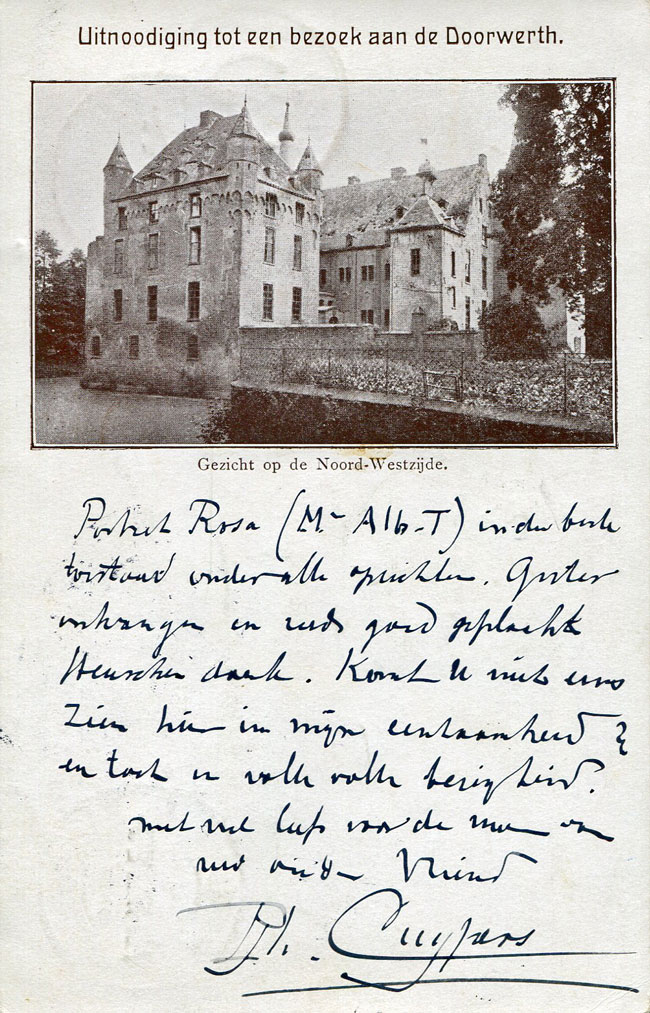 Uitnoodiging tot een bezoek aan de Doorwerth.
Gezicht op de Noord-Westzijde.
Portret Rosa (Mr Alb-T) in den beste
toestand onder alle opzichten. Gister
ontvangen en reeds goed geplaatst
dank. Komt U niet eens
zien hier in mijn eenzaamheid
en toch in volle volle bezigheid.
met veel liefs voor de van
ouden Vriend
Ph. Cuypers